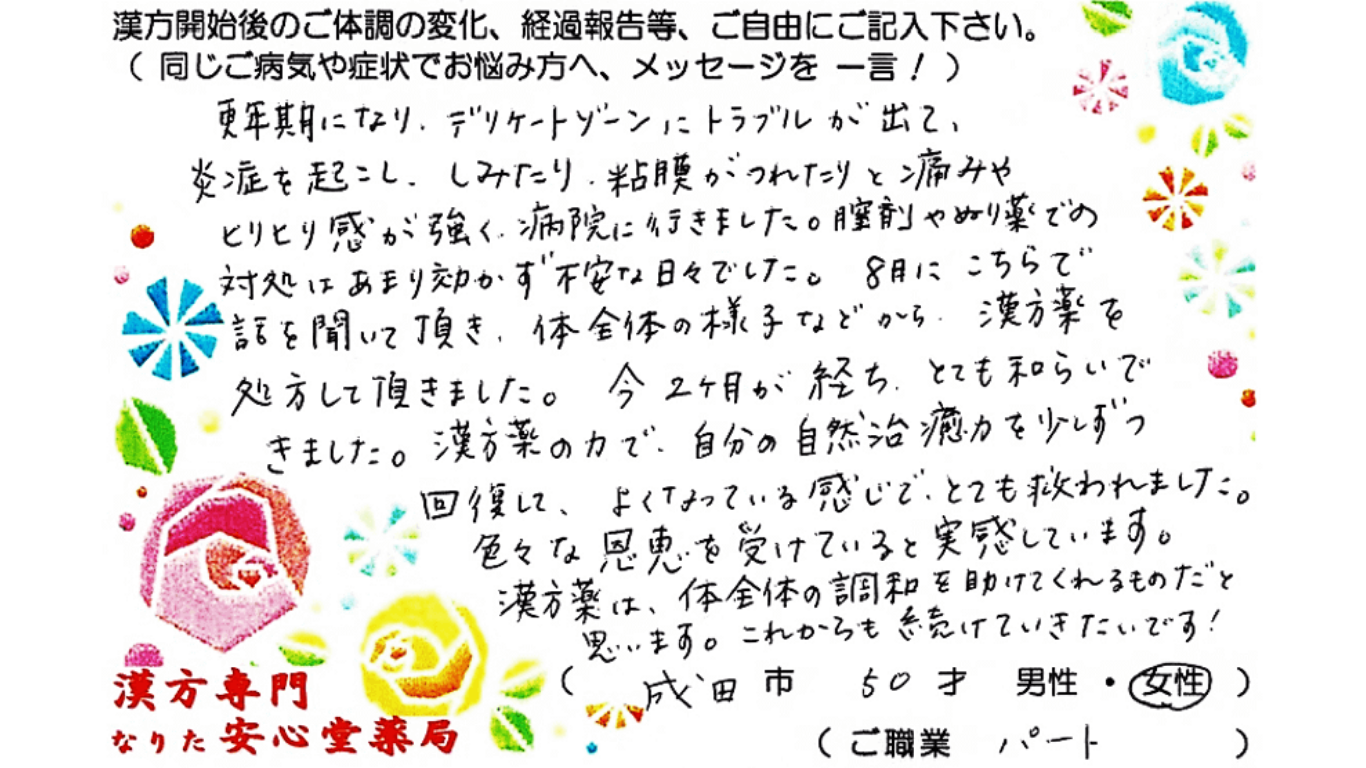 漢方開始後のご体調の変化、経過報告等、ご自由にご記入下さい。
（ 同じご病気や症状でお悩み方へ、メッセージを 一言！ ）
更年期になり、デリケートゾーンにトラブルが出て、
炎症を起こし、しみたり、粘膜がつれたりと痛みや
ヒリヒリ感が強く、病院に行きました。膣剤やぬり薬での
対処はあまり効かず不安な日々でした。 8月にこちらで
話を聞いて頂き、体全体の様子などから、漢方薬を
処方して頂きました。 今2ヶ月が経ち、とても和らいで
きました。漢方薬の力で、自分の自然治癒力を少しずつ
回復して、よくなっている感じで、とても救われました。
色々な恩恵を受けていると実感しています。
漢方薬は、体全体の調和を助けてくれるものだと
思います。これからも続けていきたいです！
（ 成田 市 50 才 男性 ・ 女性 ）
（ ご職業 パート ）
漢方専門
なりた 安心堂薬局